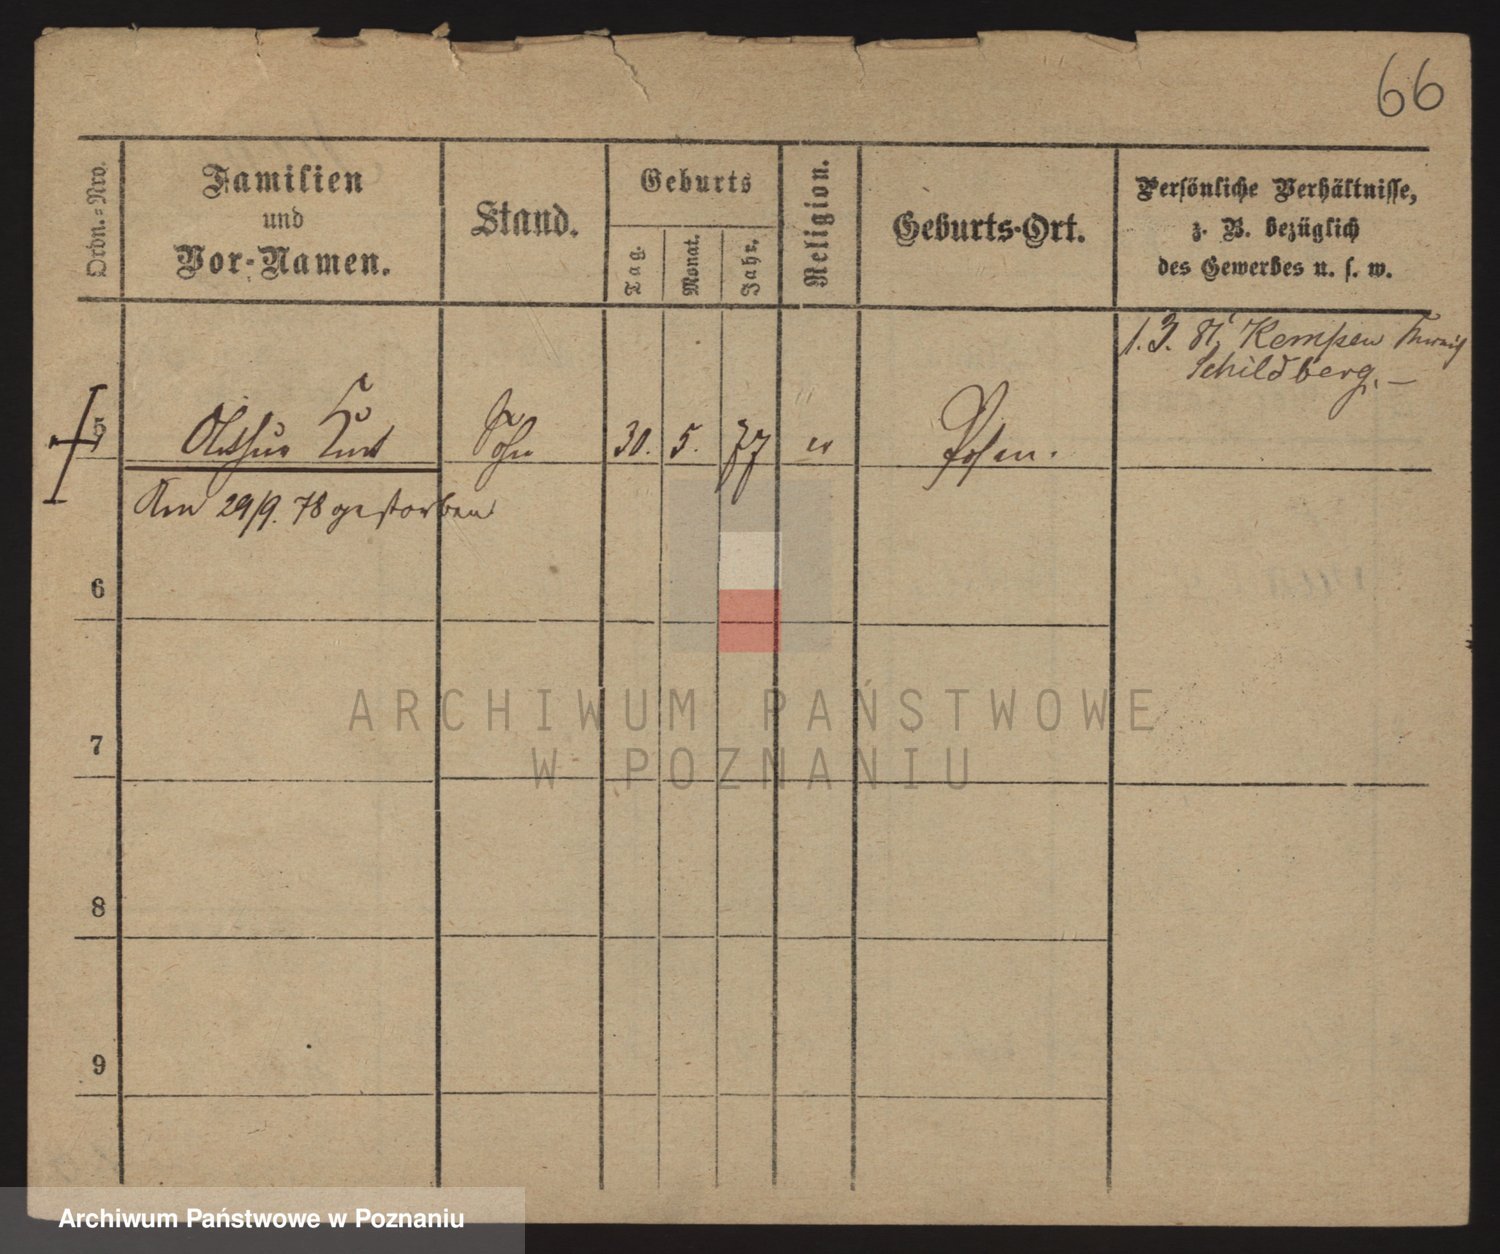 66
Ordn.=Nro.
Familien
und
Vor-Namen.
Stand.
Geburts
Tag.
Monat.
Jahr.
Religion.
Geburts-Ort.
Persönliche Verhältnisse,
z. B. bezüglich
des Gewerbes u. s. w.
1. 3. 81, Kempen
Schildberg. —
5
Arthur Curt
Sohn
30.
5.
77
"
Posen.
Am 29/9. 78 gestorben
6
7
8
9
ARCHIWUM PAŃSTWOWE
W POZNANIU
Archiwum Państwowe w Poznaniu